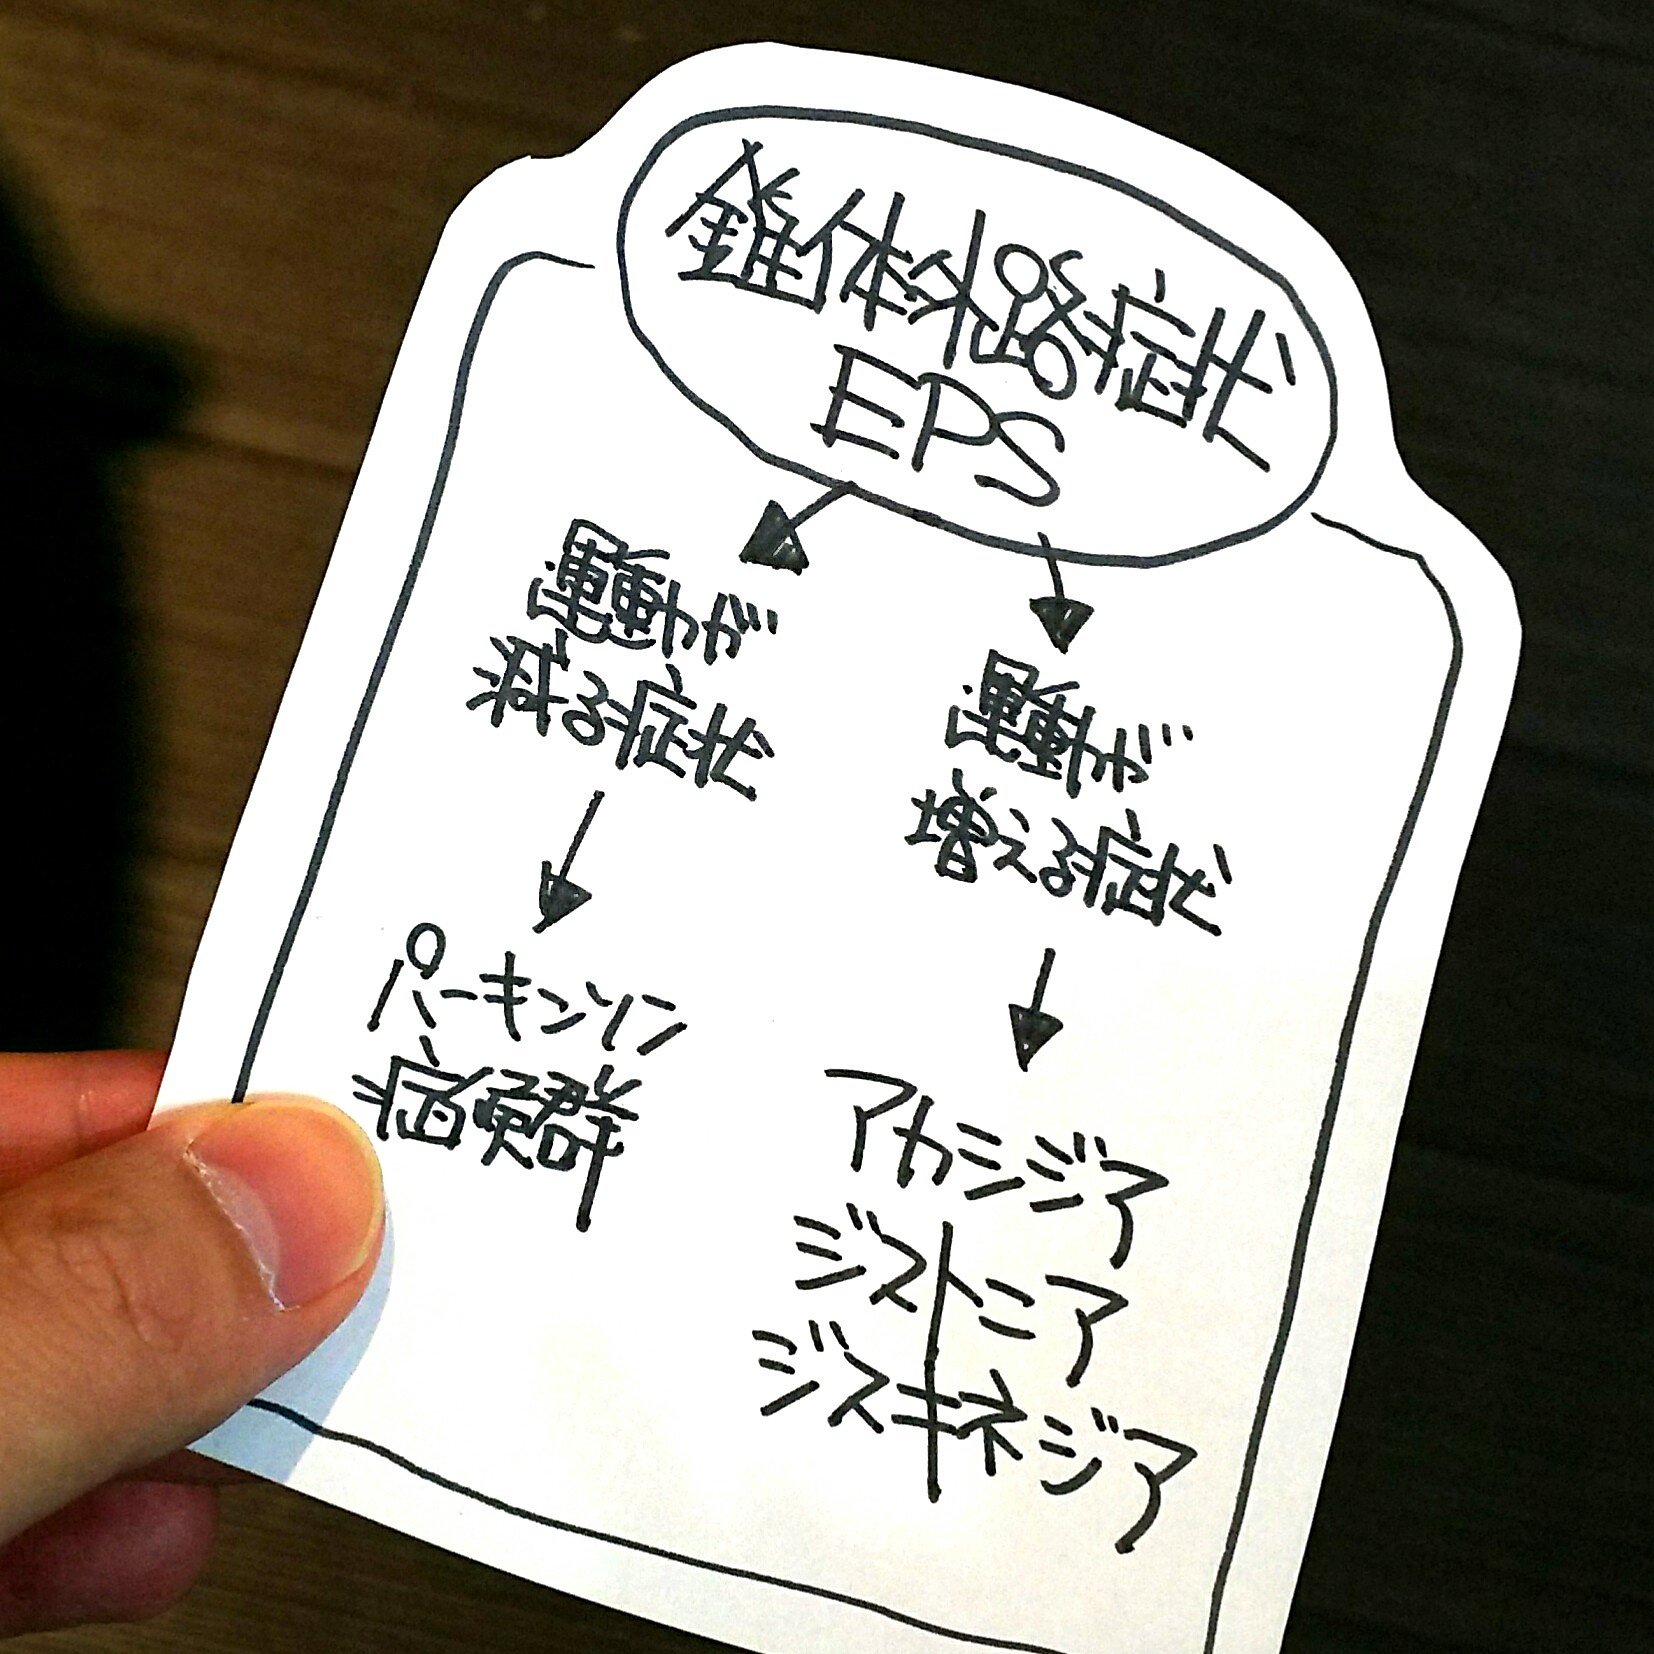 錐体外路症状
EPS
運動が
減る症状
パーキンソン
症候群
運動が
増える症状
アカシジア
ジストニア
ジスキネジア